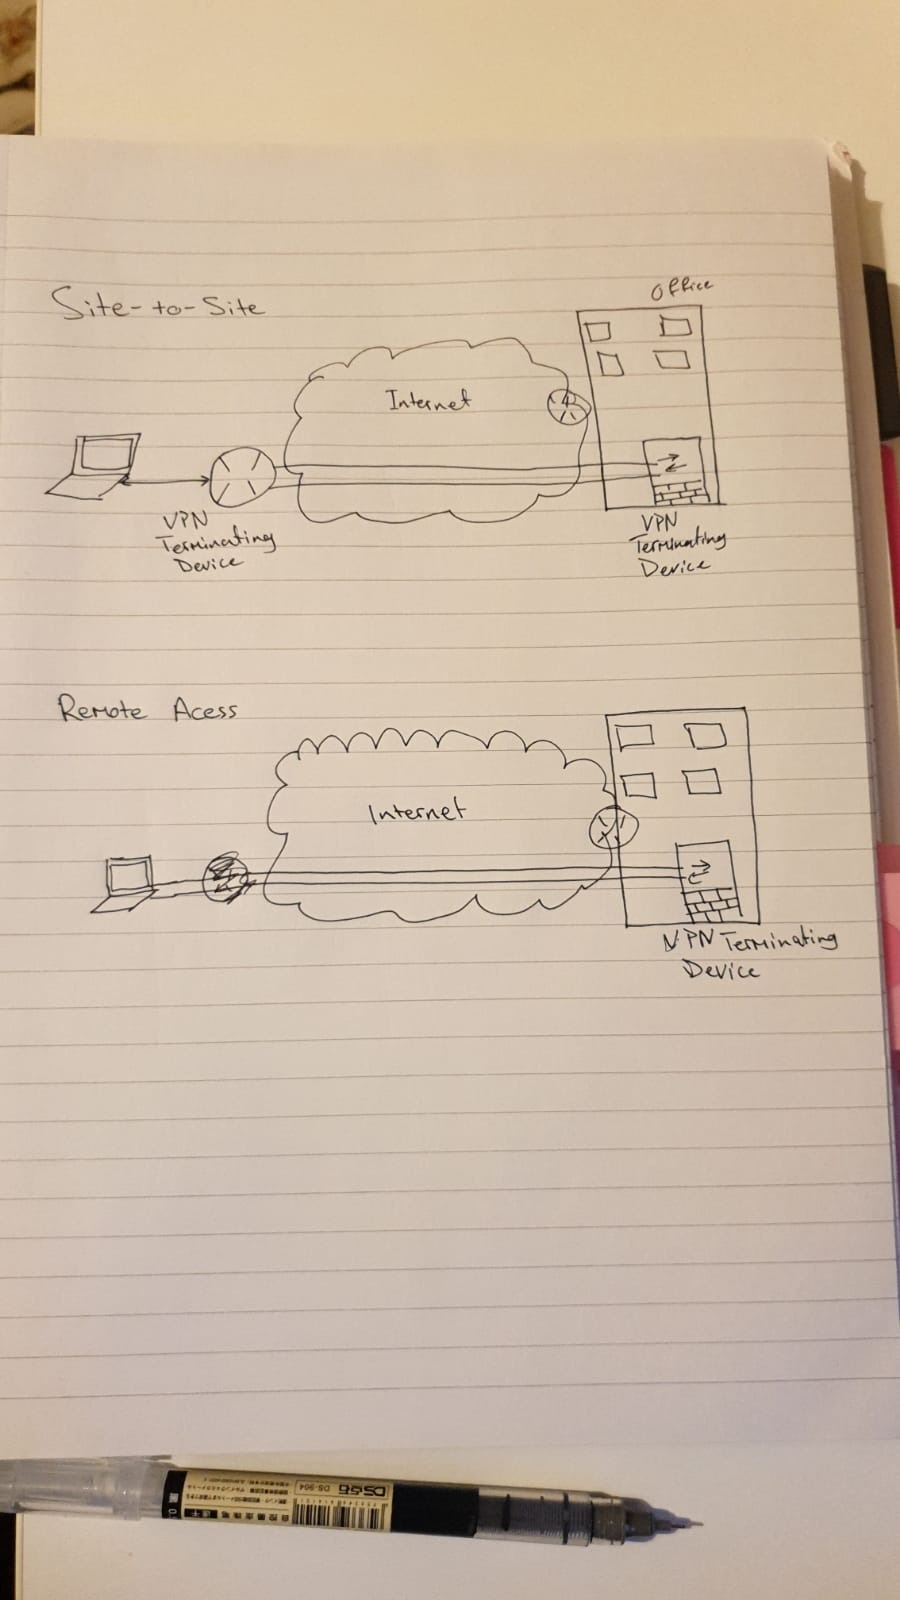 Site-to-Site
Office
Internet
VPN
Terminating
Device
VPN
Terminating
Device
Remote Acess
Internet
VPN Terminating
Device
DS-964